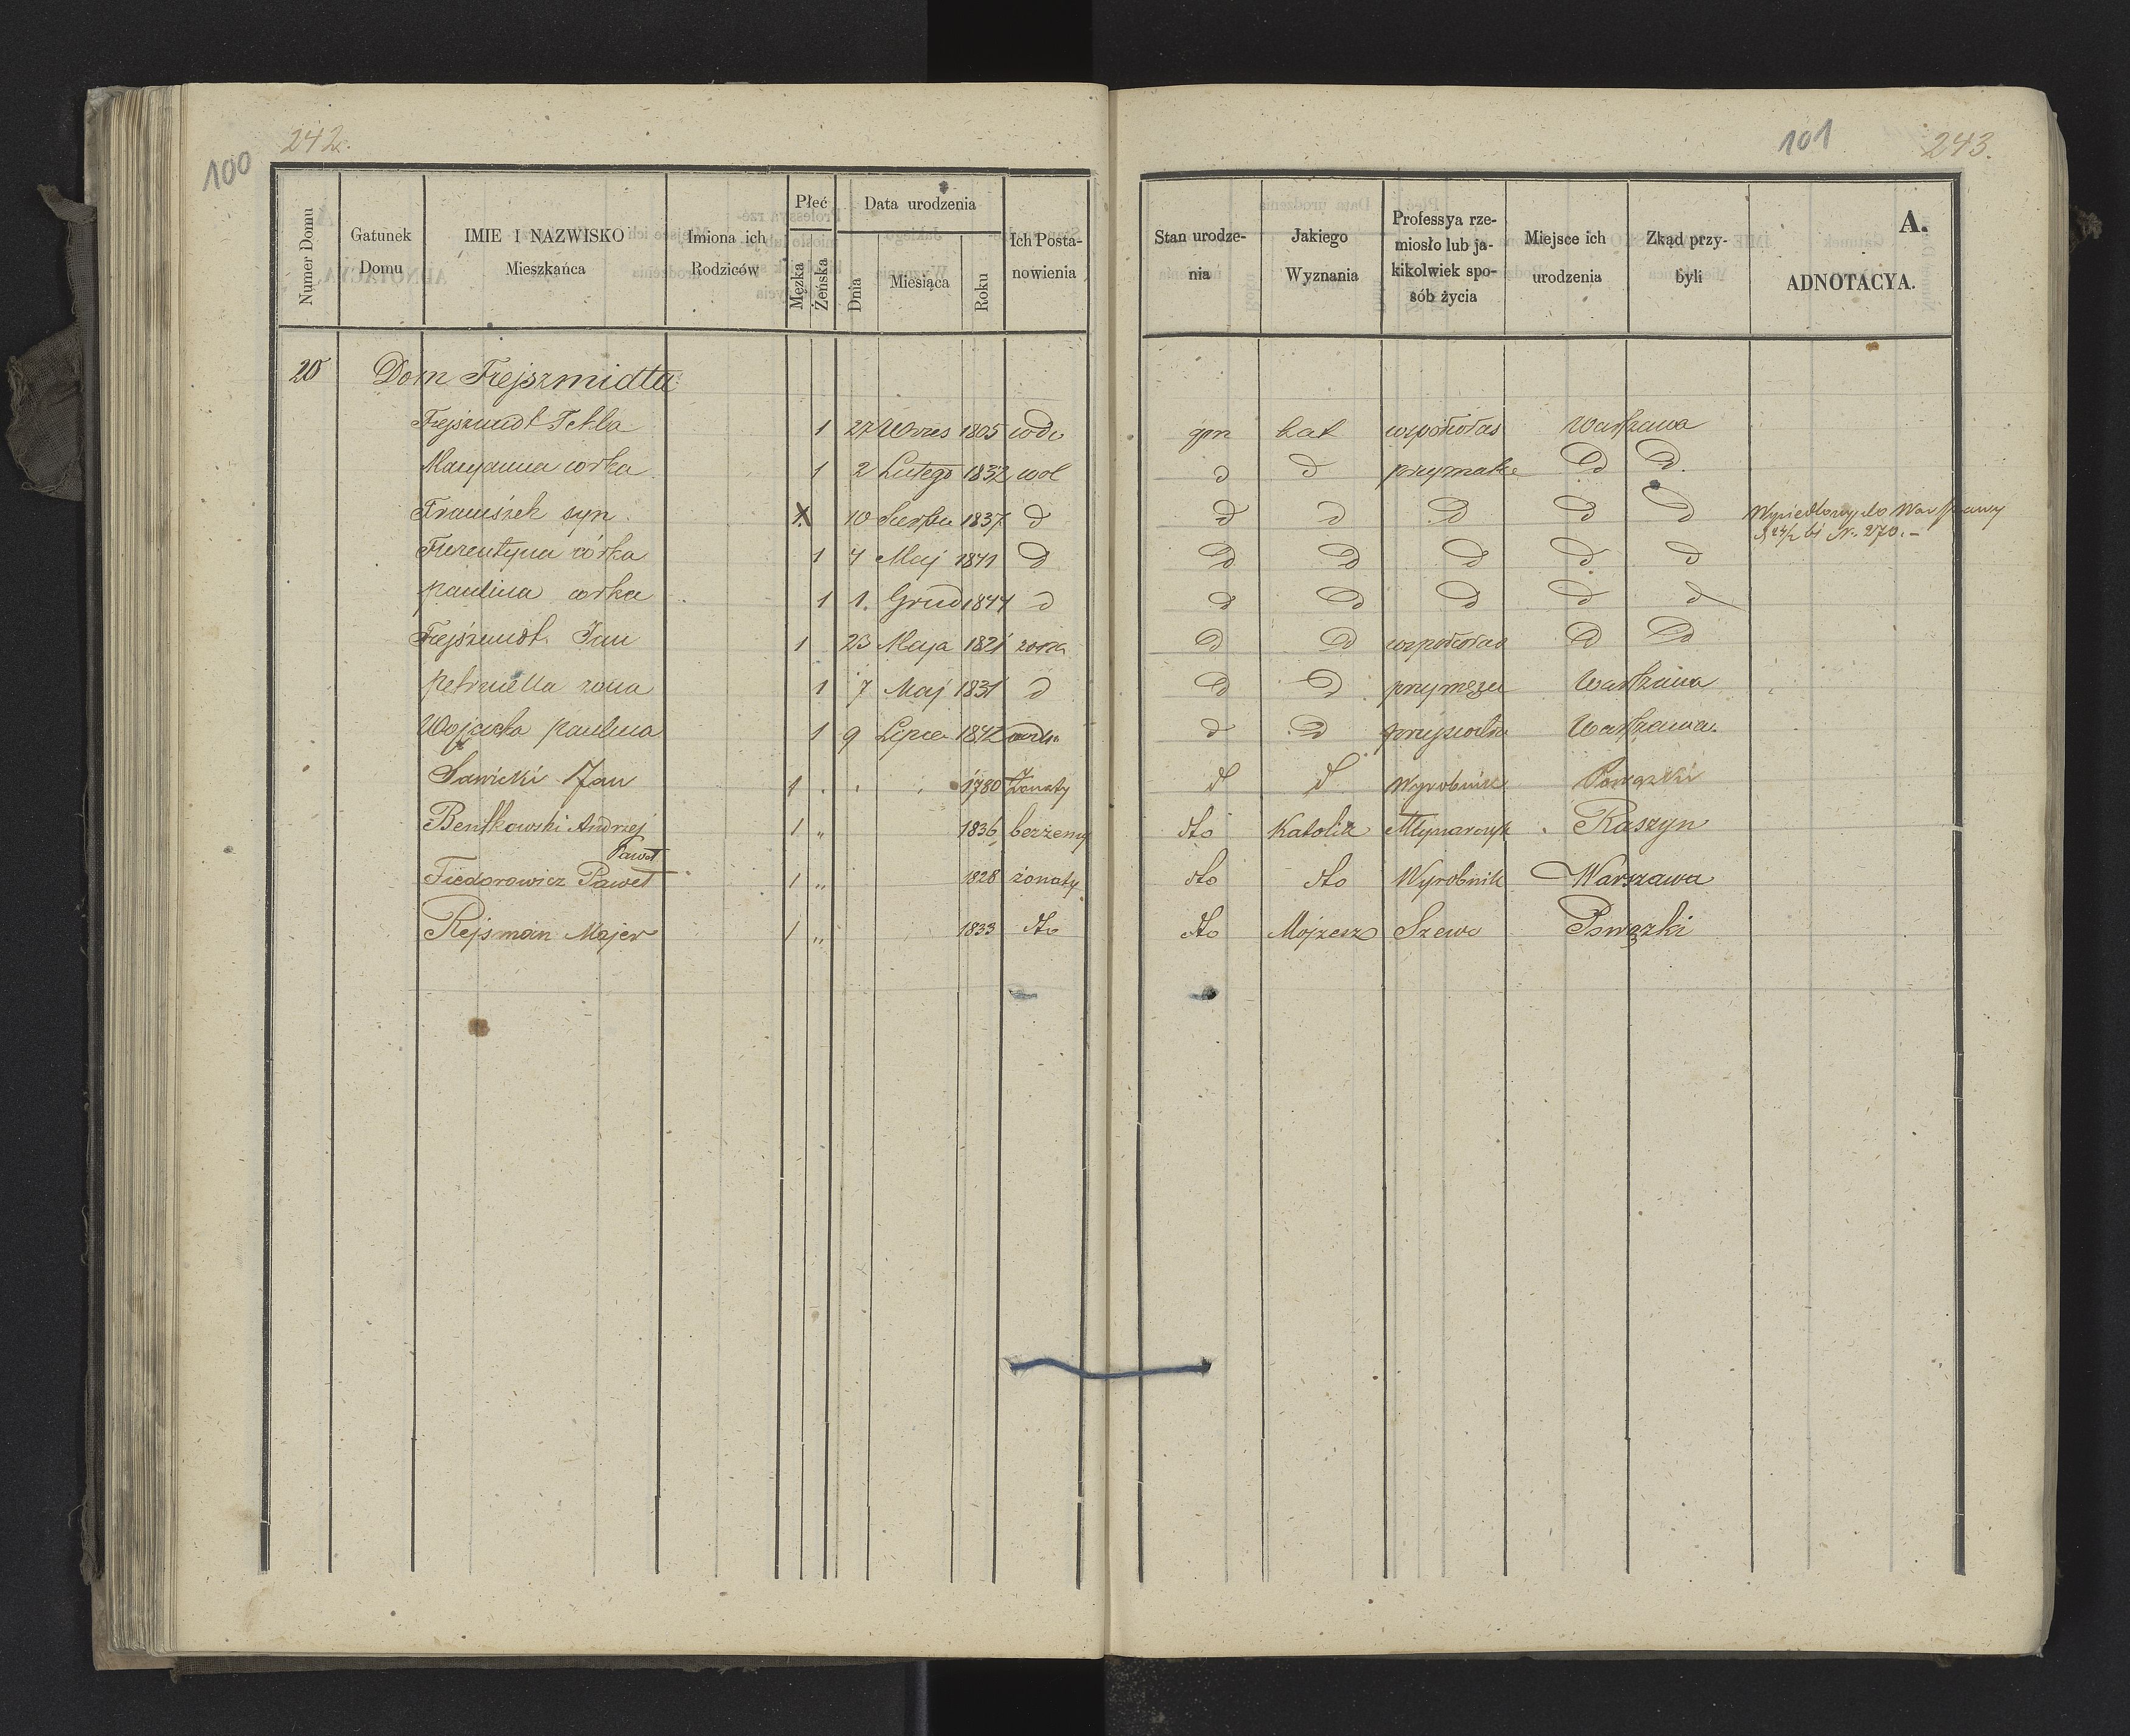 242.
100
Numer Domu
Gatunek Domu
IMIE I NAZWISKO Mieszkańca
Imiona ich Rodziców
Płeć
Męzka
Żeńska
Data urodzenia
Dnia
Miesiąca
Roku
Ich Postanowienia
20 Dom Frejszmidta
Frejszmidt Tekla 1 27 Wrzes 1805 wdo
Maryanna corka 1 2 Lutego 1832 wol
Franciszek syn X 10 Sierpn 1837 d
Florentyna córka 1 4 Maj 1841 d
paulina corka 1 1. Grud 1844 d
Frejszmidt Jan 1 23 Maja 1821 zona
petronella zona 1 7 Maj 1831 d
Wojcicka paulina 1 9 Lipca 1842
Sawicki Jan 1 1780 Żonaty
Bentkowski Andrzej 1 " 1836 bezżenny
Paweł
Fiedorowicz Paweł 1 " 1828 żonaty
Rejsman Majer 1 " 1833 dto
101
243.
Stan urodzenia
Jakiego Wyznania
Professya rzemiosło lub jakikolwiek sposób życia
Miejsce ich urodzenia
Zkąd przybyli
A.
ADNOTACYA.
gm kat wspołwłas Warszawa
d d przymatce d d
d d d d d Wysiedlony do Warszawy
Nr. 270.-
d d d d d
d d d d d
d d wspołwłas d d
d d przymężu Warszawa
d d Warszawa.
d d Wyrobnik Powązki
dto Katolik Młynarczyk Raszyn
dto dto Wyrobnik Warszawa
dto Mojżesz Szewc Powązki